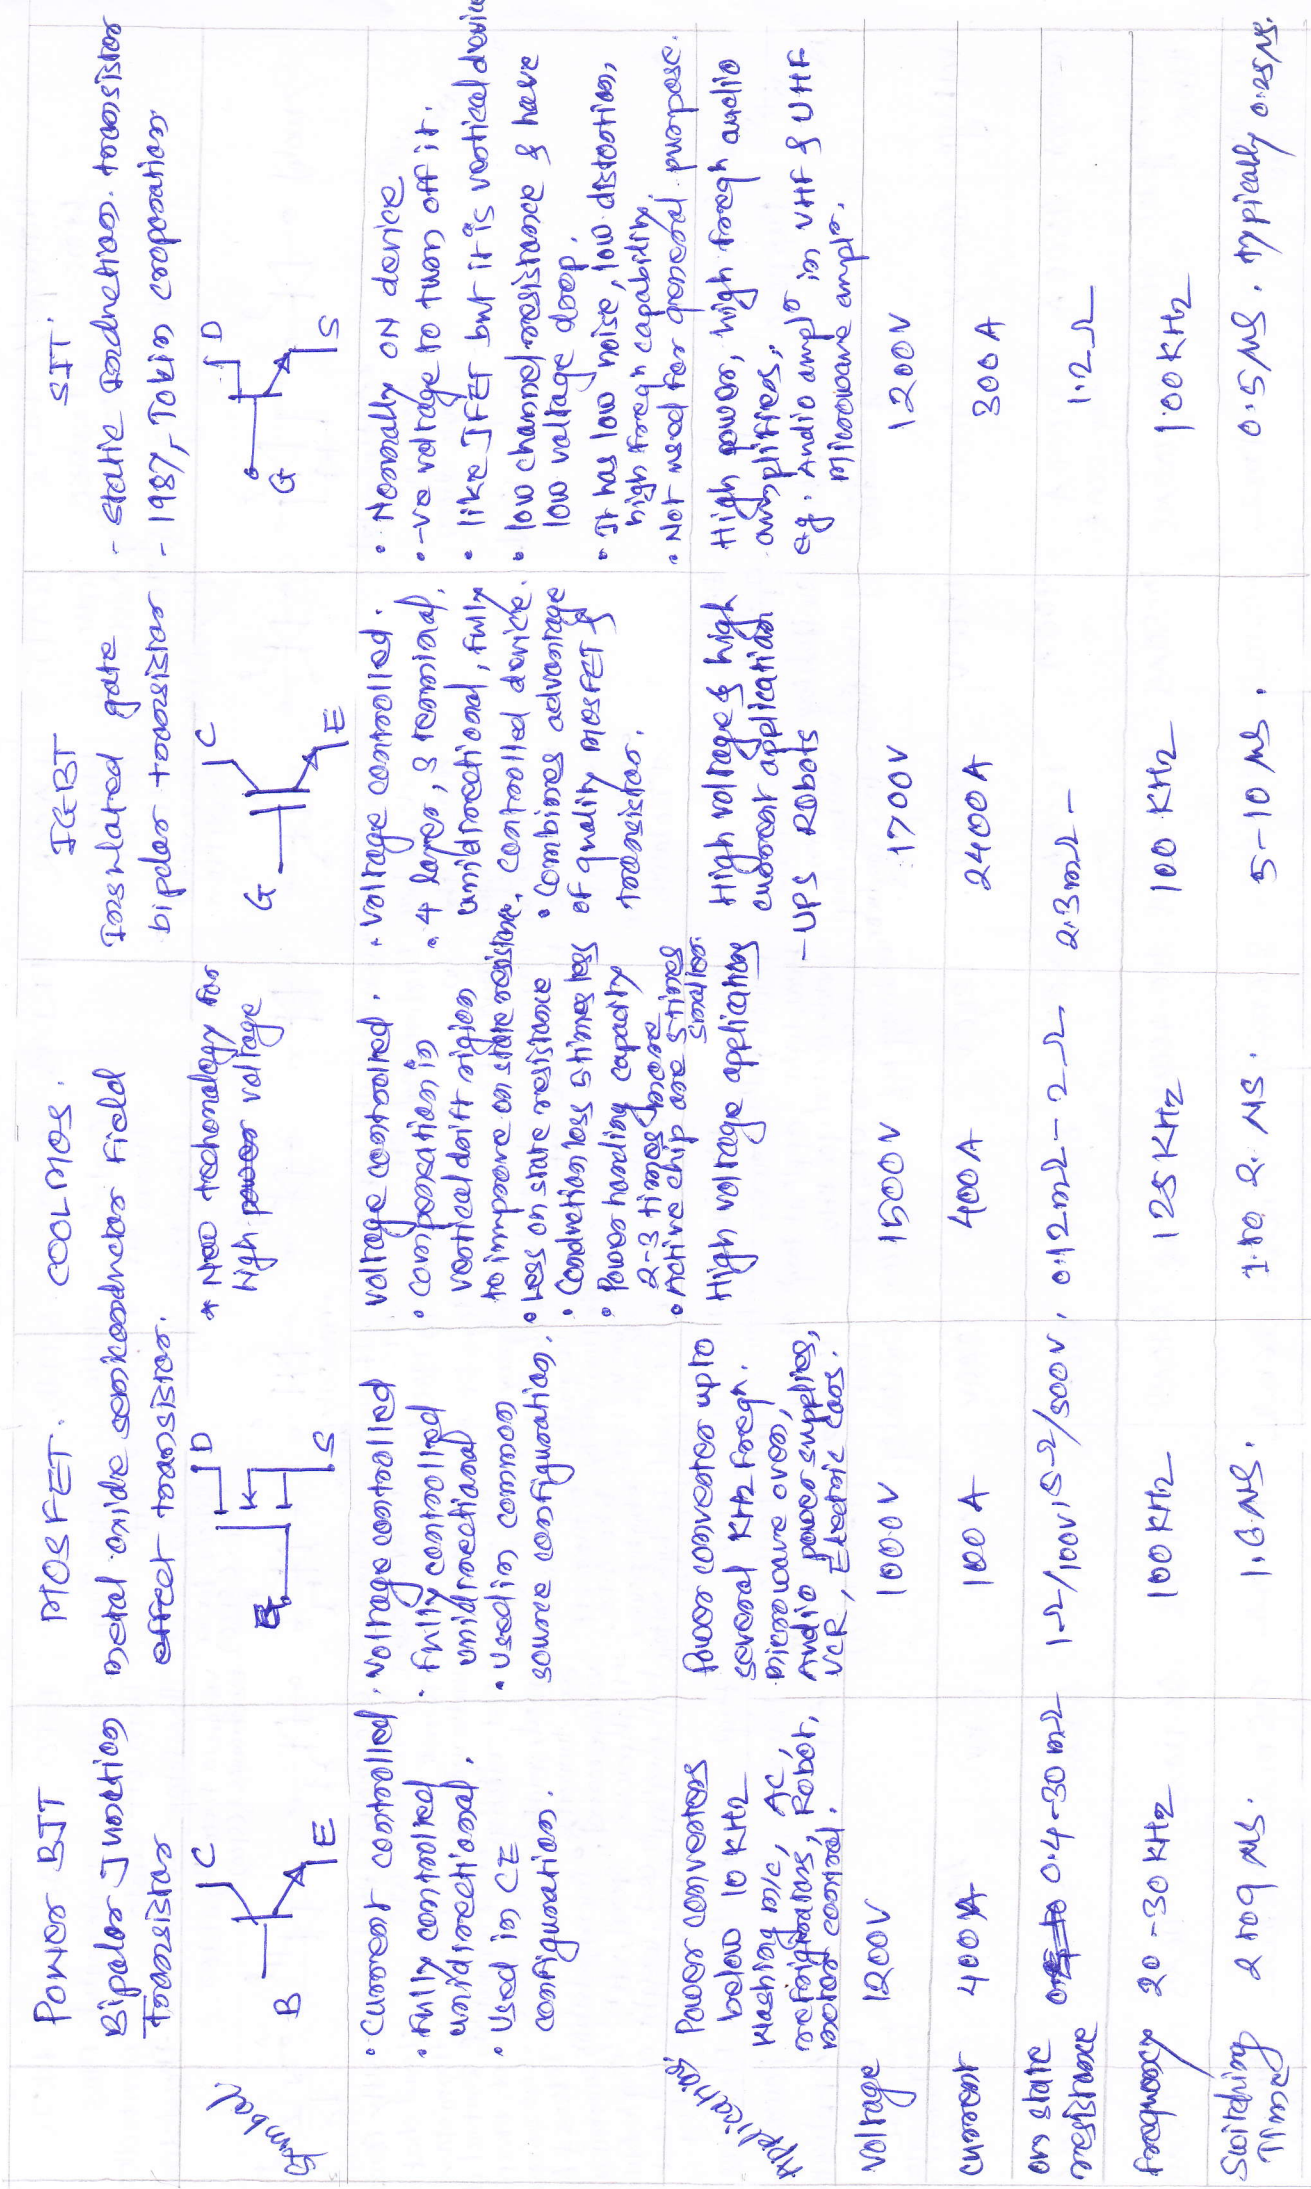 Power BJT
Bipolar Junction
Transistor
MOSFET.
metal oxide semiconductor field
effect transistor.
COOLMOS.
IGBT
Insulated gate
bipolar transistor
SIT.
- static Induction transistor
- 1987, Tokin corporation
Symbol
B
C
E
D
S
* New technology for
high power voltage
G
C
E
G
D
S
• Current controlled
• Fully controlled
unidirectional.
• Used in CE
configuration.
• Voltage controlled
• Fully controlled
unidirectional
• Used in common
source configuration.
Voltage controlled.
• Compensation in
vertical drift region
to improve on state resistance.
• Less on state resistance
• Conduction loss 5 times less
• Power handling capacity
2-3 times more
• Active chip are 5 times
smaller.
• Voltage controlled.
• 4 layer, 3 terminal,
unidirectional, fully
controlled device.
• Combines advantage
of quality MOSFET &
transistor.
• Normally ON device
• -ve voltage to turn off it.
• like JFET but it is vertical device
• low channel resistance & have
low voltage drop.
• It has low noise, low distortion,
high freqn capability.
• Not used for general purpose.
Application
Power converters
below 10 KHz
Washing m/c, AC,
refrigerators, Robot,
motor control.
Power converter upto
several KHz freqn.
microwave oven,
Audio power supplies,
VCR, Electric cars.
High voltage applications
High voltage & high
current application
- UPS Robots
High power, high freqn audio
amplifires,
eg. Audio amplr in VHF & UHF
microwave amplr.
Voltage
1200V
1000V
1500V
1700V
1200V
current
400A
100A
400A
2400A
300A
on state
resistance
0.4-30mΩ
1Ω/100V, 5Ω/500V,
0.12mΩ - 2Ω
2.3mΩ -
1.2Ω
frequency
20-30 KHz
100 KHz
125 KHz
100 KHz
100 KHz
Switching
Time
2 to 9 μs.
1.6 μs.
1 to 2. μs.
5-10 μs.
0.5 μs, typically 0.25 μs.